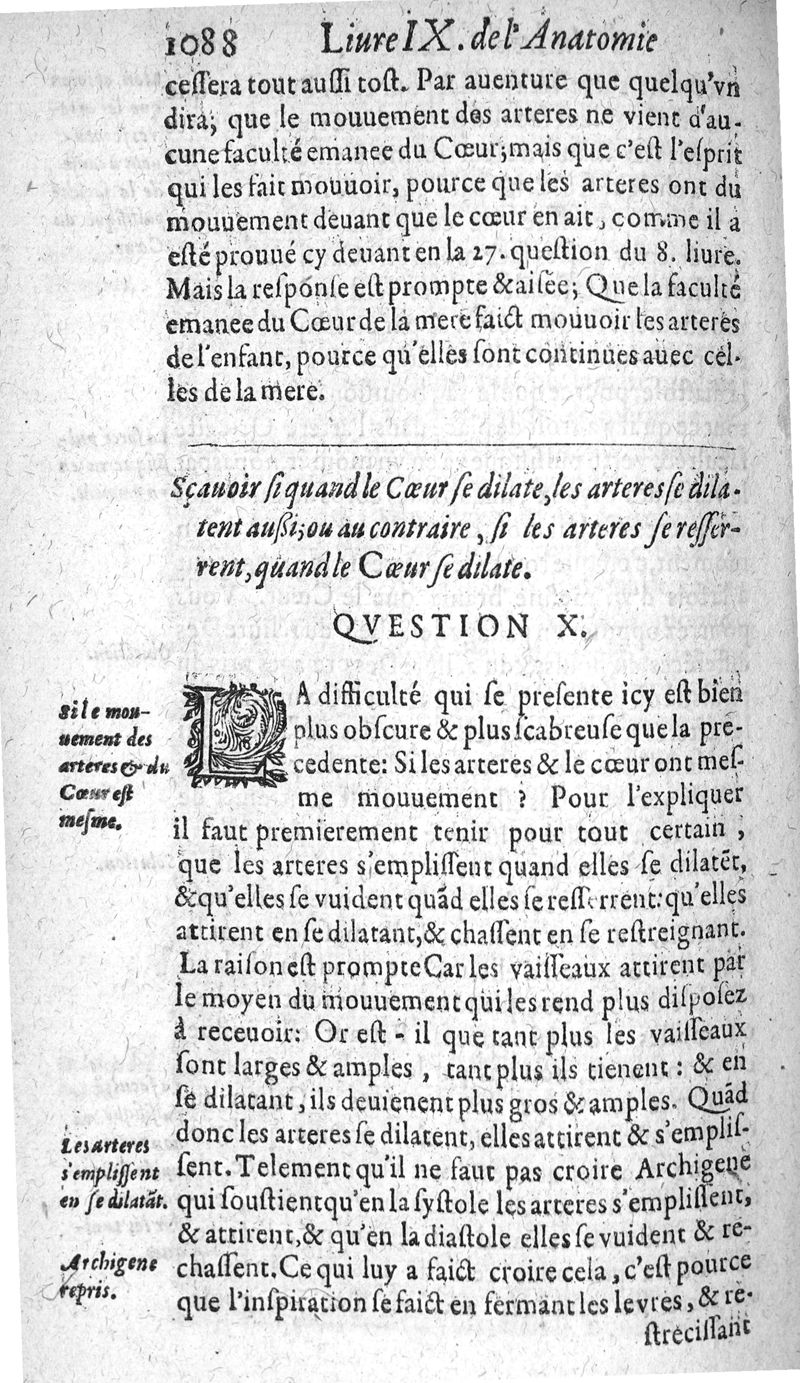 1088 Liure IX. de l'Anatomie
cessera tout aussi tost. Par auenture que quelqu'vn
dira; que le mouuement des arteres ne vient d'au-
cune faculté emanee du Cœur; mais que c'est l'esprit
qui les fait mouuoir, pource que les arteres ont du
mouuement deuant que le cœur en ait, comme il a
esté prouué cy deuant en la 27. question du 8. liure.
Mais la response est prompte & aisée; Que la faculté
emanee du Cœur de la mere faict mouuoir les arteres
de l'enfant, pource qu'elles sont continues auec cel-
les de la mere.
Sçauoir si quand le Cœur se dilate, les arteres se dila-
tent aussi; ou au contraire, si les arteres se resser-
rent, quand le Cœur se dilate.
QVESTION X.
Si le mou-
uement des
arteres & du
Cœur est
mesme.
LA difficulté qui se presente icy est bien
plus obscure & plus scabreuse que la pre-
cedente: Si les arteres & le cœur ont mes-
me mouuement ? Pour l'expliquer
il faut premierement tenir pour tout certain,
que les arteres s'emplissent quand elles se dilatēt,
& qu'elles se vuident quād elles se resserrent: qu'elles
attirent en se dilatant, & chassent en se restreignant.
La raison est prompte Car les vaisseaux attirent par
le moyen du mouuement qui les rend plus disposez
à receuoir: Or est-il que tant plus les vaisseaux
sont larges & amples, tant plus ils tienent: & en
se dilatant, ils deuienent plus gros & amples. Quād
donc les arteres se dilatent, elles attirent & s'emplis-
sent. Telement qu'il ne faut pas croire Archigene
qui soustient qu'en la systole les arteres s'emplissent,
& attirent, & qu'en la diastole elles se vuident & re-
chassent. Ce qui luy a faict croire cela, c'est pource
que l'inspiration se faict en fermant les levres, & re-
strecissant
Les arteres
s'emplissent
en se dilatāt.
Archigene
repris.